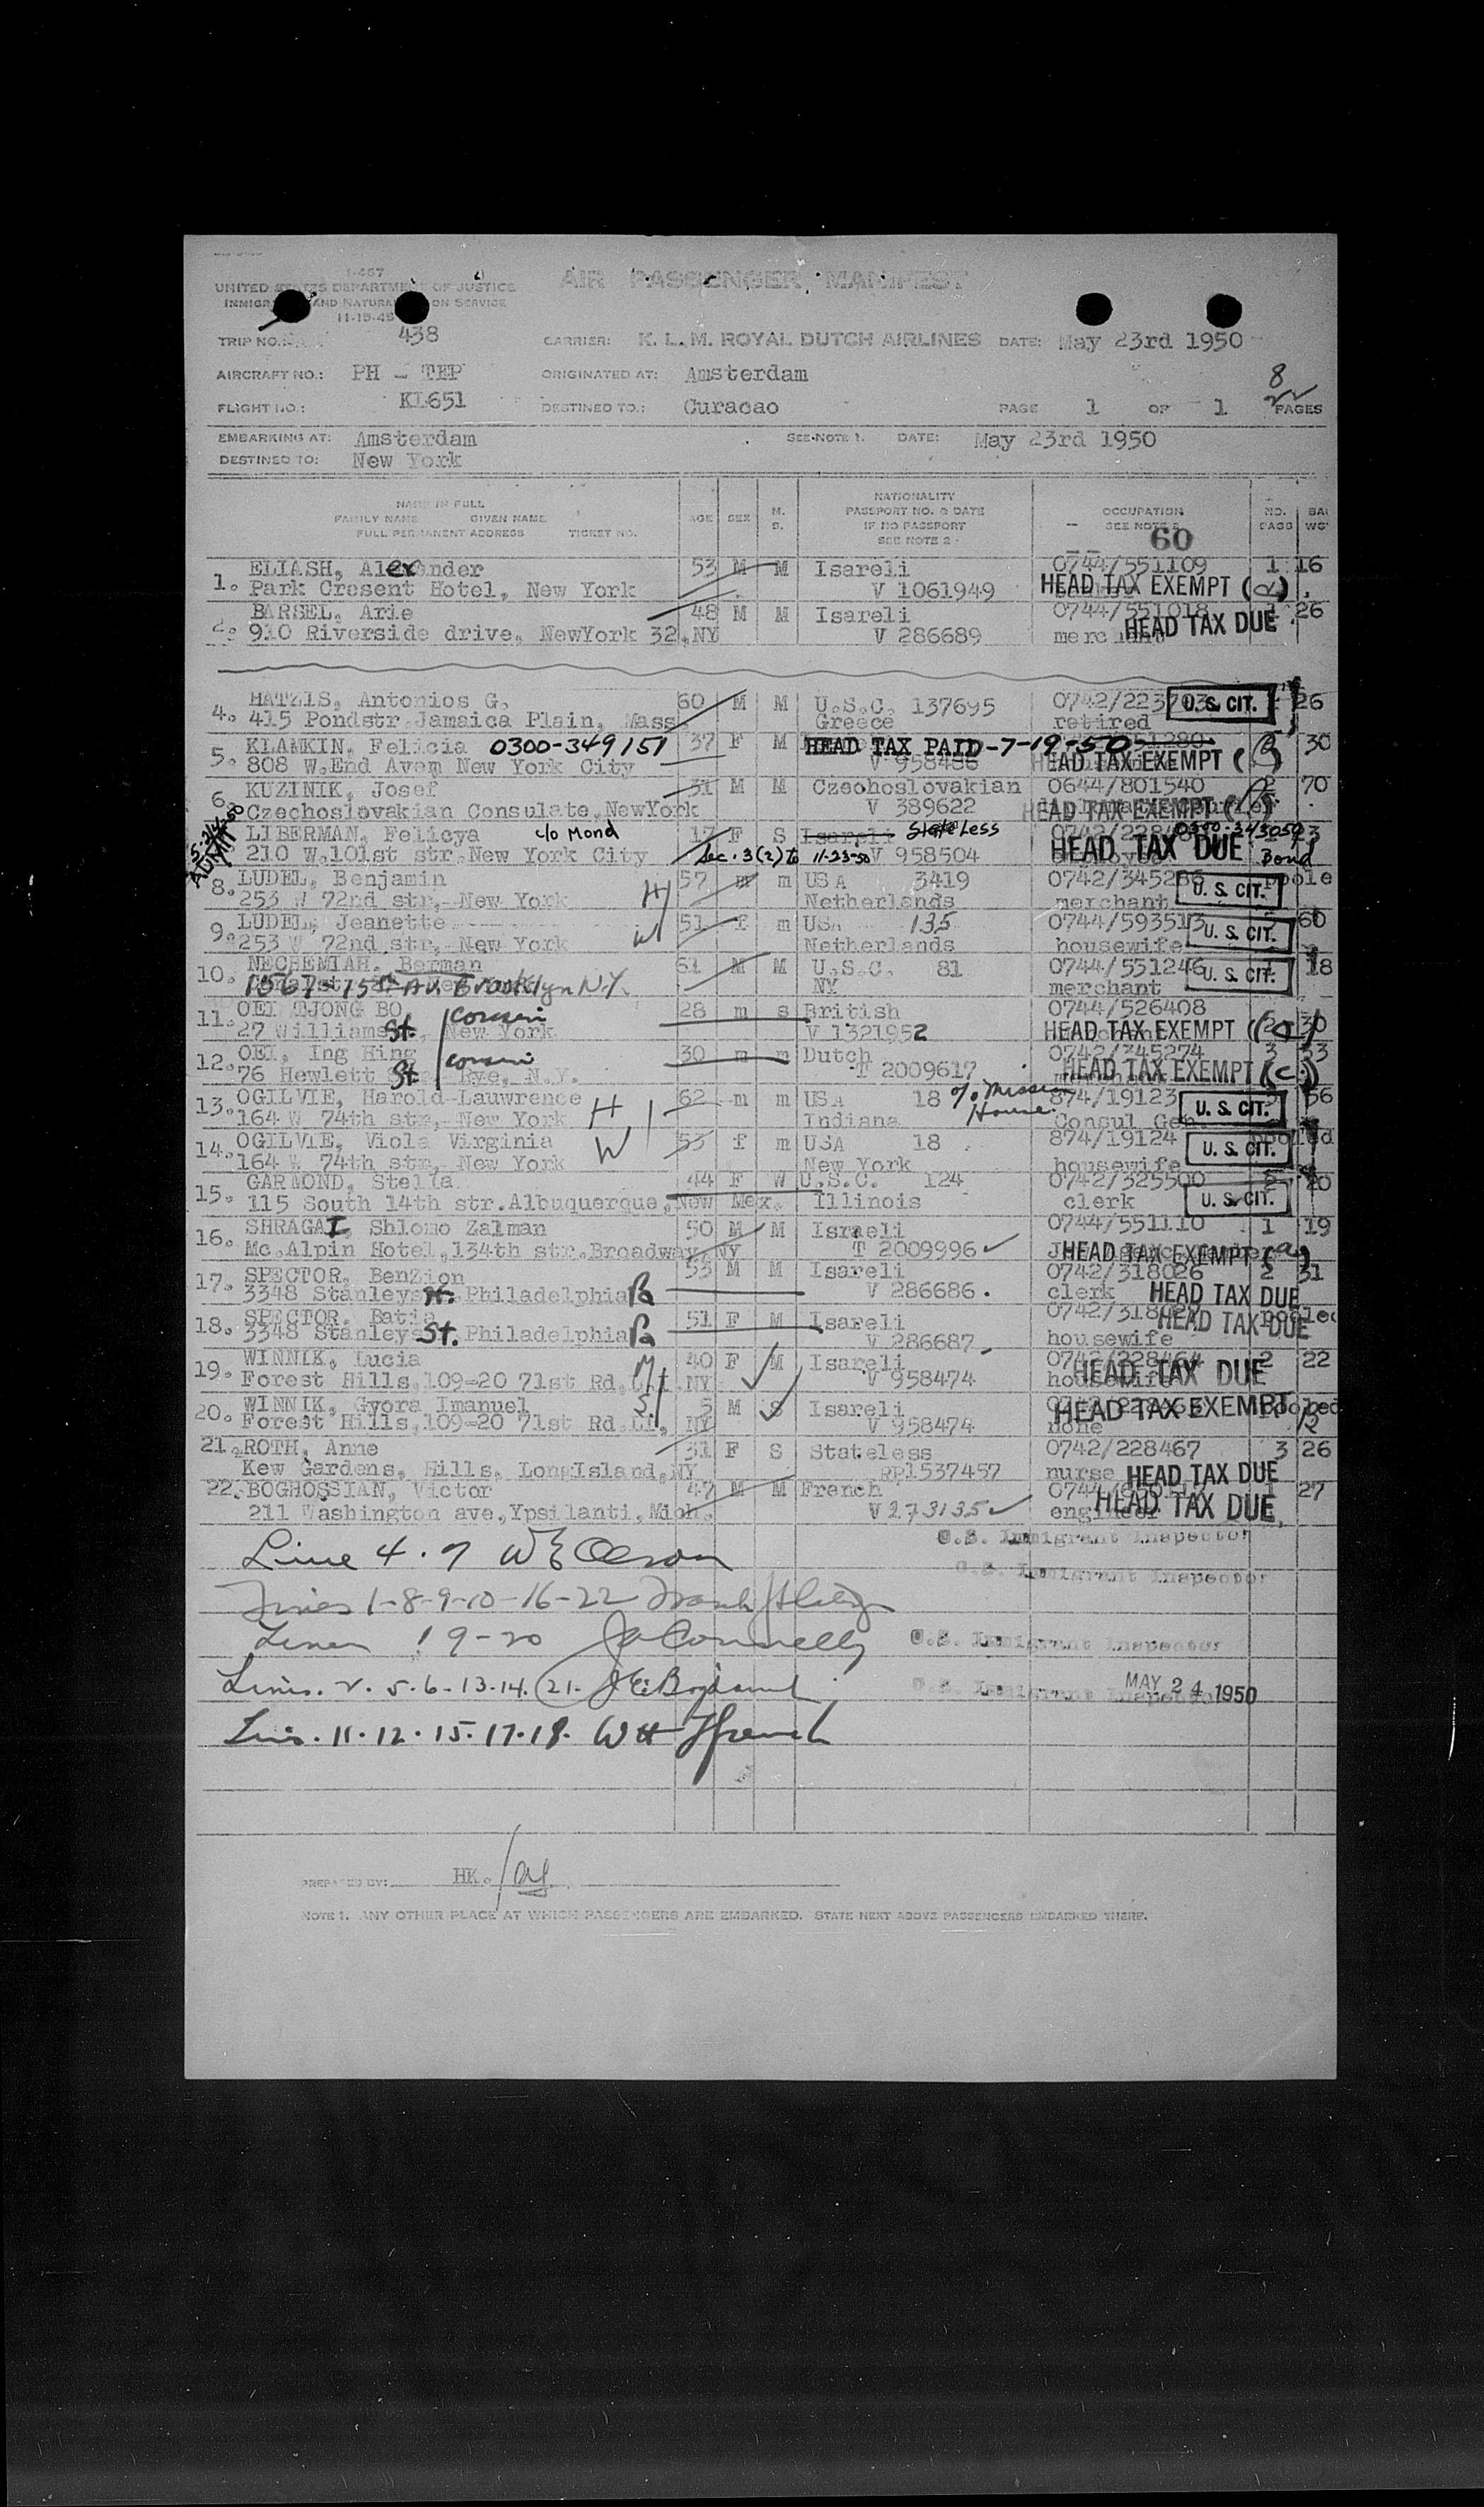 I-467
UNITED STATES DEPARTMENT OF JUSTICE
IMMIGR AND NATURA ON SERVICE
11-15-4
AIR PASSENGER MANIFEST
TRIP NO.: 438 CARRIER: K. L. M. ROYAL DUTCH AIRLINES DATE: May 23rd 1950
AIRCRAFT NO.: PH - TEP ORIGINATED AT: Amsterdam 8
FLIGHT NO.: KL651 DESTINED TO.: Curacao PAGE 1 OF 1 PAGES
EMBARKING AT: Amsterdam SEE NOTE 1. DATE: May 23rd 1950
DESTINED TO: New York
NAME IN FULL
FAMILY NAME GIVEN NAME
FULL PERMANENT ADDRESS TICKET NO.
AGE SEX M. S.
NATIONALITY
PASSPORT NO. & DATE
IF NO PASSPORT
SEE NOTE 2
OCCUPATION
SEE NOTE 2
60
NO. BAGG BAG WG'
1. ELIASH, Alexander 53 M M Isareli 0744/551109 1 16
Park Cresent Hotel, New York V 1061949 HEAD TAX EXEMPT (a)
2. BARSEL, Arie 48 M M Isareli 0744/551018 1 26
910 Riverside drive, NewYork 32,NY V 286689 merchant HEAD TAX DUE
4. HATZIS, Antonios G. 60 M M U.S.C. 137695 0742/223703 U. S. CIT. 26
415 Pondstr.Jamaica Plain, Mass Greece retired
5. KLAMKIN, Felicia 0300-349151 37 F M HEAD TAX PAID-7-19-50 30
808 W.End Avem New York City V 958486 HEAD TAX EXEMPT
6. KUZINIK, Josef 31 M M Czechoslovakian 0644/801540 2 70
Czechoslovakian Consulate,NewYork V 389622 HEAD TAX EXEMPT
ADMIT
LIBERMAN, Felicya c/o Mond 17 F S Isareli Stateless 0300-343059
210 W.101st str.New York City Sec. 3(2) to 11-23-50 V 958504 HEAD TAX DUE Bond
8. LUDEL, Benjamin H 57 m m USA 3419 0742/345286 U. S. CIT. poole
253 W 72nd str, New York Netherlands merchant
9. LUDEL, Jeanette W 51 f m USA 135 0744/593513 U. S. CIT. 60
253 W 72nd str, New York Netherlands housewife
10. NECHEMIAH, Berman 61 M M U.S.C. 81 0744/551246 U. S. CIT. 18
1567-75th Av. Brooklyn N.Y. NY merchant
11. OEI TJONG BO cousin 28 m s British 0744/526408
27 Williams St., New York V 1321952 HEAD TAX EXEMPT 30
12. OEI, Ing Hing cousin 30 m m Dutch 0742/345274 3 33
76 Hewlett St Rye, N.Y. T 2009617 HEAD TAX EXEMPT (c)
13. OGILVIE, Harold Lauwrence H 62 m m USA 18 c/o Mission House 874/19123 U. S. CIT. 56
164 W 74th str, New York Indiana Consul Gen.
14. OGILVIE, Viola Virginia W 53 f m USA 18 874/19124 U. S. CIT. pooled
164 W 74th str, New York New York housewife
15. GARMOND, Stella 44 F W U.S.C. 124 0742/325500 U. S. CIT. 20
115 South 14th str.Albuquerque,New Mex. Illinois clerk
16. SHRAGAI, Shlomo Zalman 50 M M Israeli 0744/551110 1 19
Mc.Alpin Hotel,134th str.Broadway,NY T 2009996 HEAD TAX EXEMPT (a)
17. SPECTOR, BenZion 53 M M Isareli 0742/318026 2 31
3348 Stanleys St. Philadelphia Pa V 286686. clerk HEAD TAX DUE
18. SPECTOR, Batia 51 F M Isareli pooled
3348 Stanleys St. Philadelphia Pa V 286687 housewife HEAD TAX DUE
19. WINNIK, Lucia M 40 F M Isareli 0742/228464 2 22
Forest Hills,109-20 71st Rd,L.I.NY V 958474 housewife HEAD TAX DUE
20. WINNIK, Gyora Imanuel S 5 M S Isareli pooled
Forest Hills,109-20 71st Rd.LI, NY V 958474 none HEAD TAX EXEMPT 12
21. ROTH, Anne 31 F S Stateless 0742/228467 3 26
Kew Gardens, Hills, LongIsland,NY RP1537457 nurse HEAD TAX DUE
22. BOGHOSSIAN, Victor 47 M M French 1 27
211 Washington ave,Ypsilanti,Mich. V273135 engineer HEAD TAX DUE
Line 4.7 W E Olson U.S. Immigrant Inspector
U.S. Immigrant Inspector
Lines 1-8-9-10-16-22 Frank
Lines 19-20 J Connelly U.S. Immigrant Inspector
Lines. 2. 5. 6. 13.14. 21. U.S. Immigrant Inspector MAY 24 1950
Lins. 11.12.15.17.18. W H French
PREPARED BY: HK.
NOTE 1. ANY OTHER PLACE AT WHICH PASSENGERS ARE EMBARKED. STATE NEXT ABOVE PASSENGERS EMBARKED THERE.